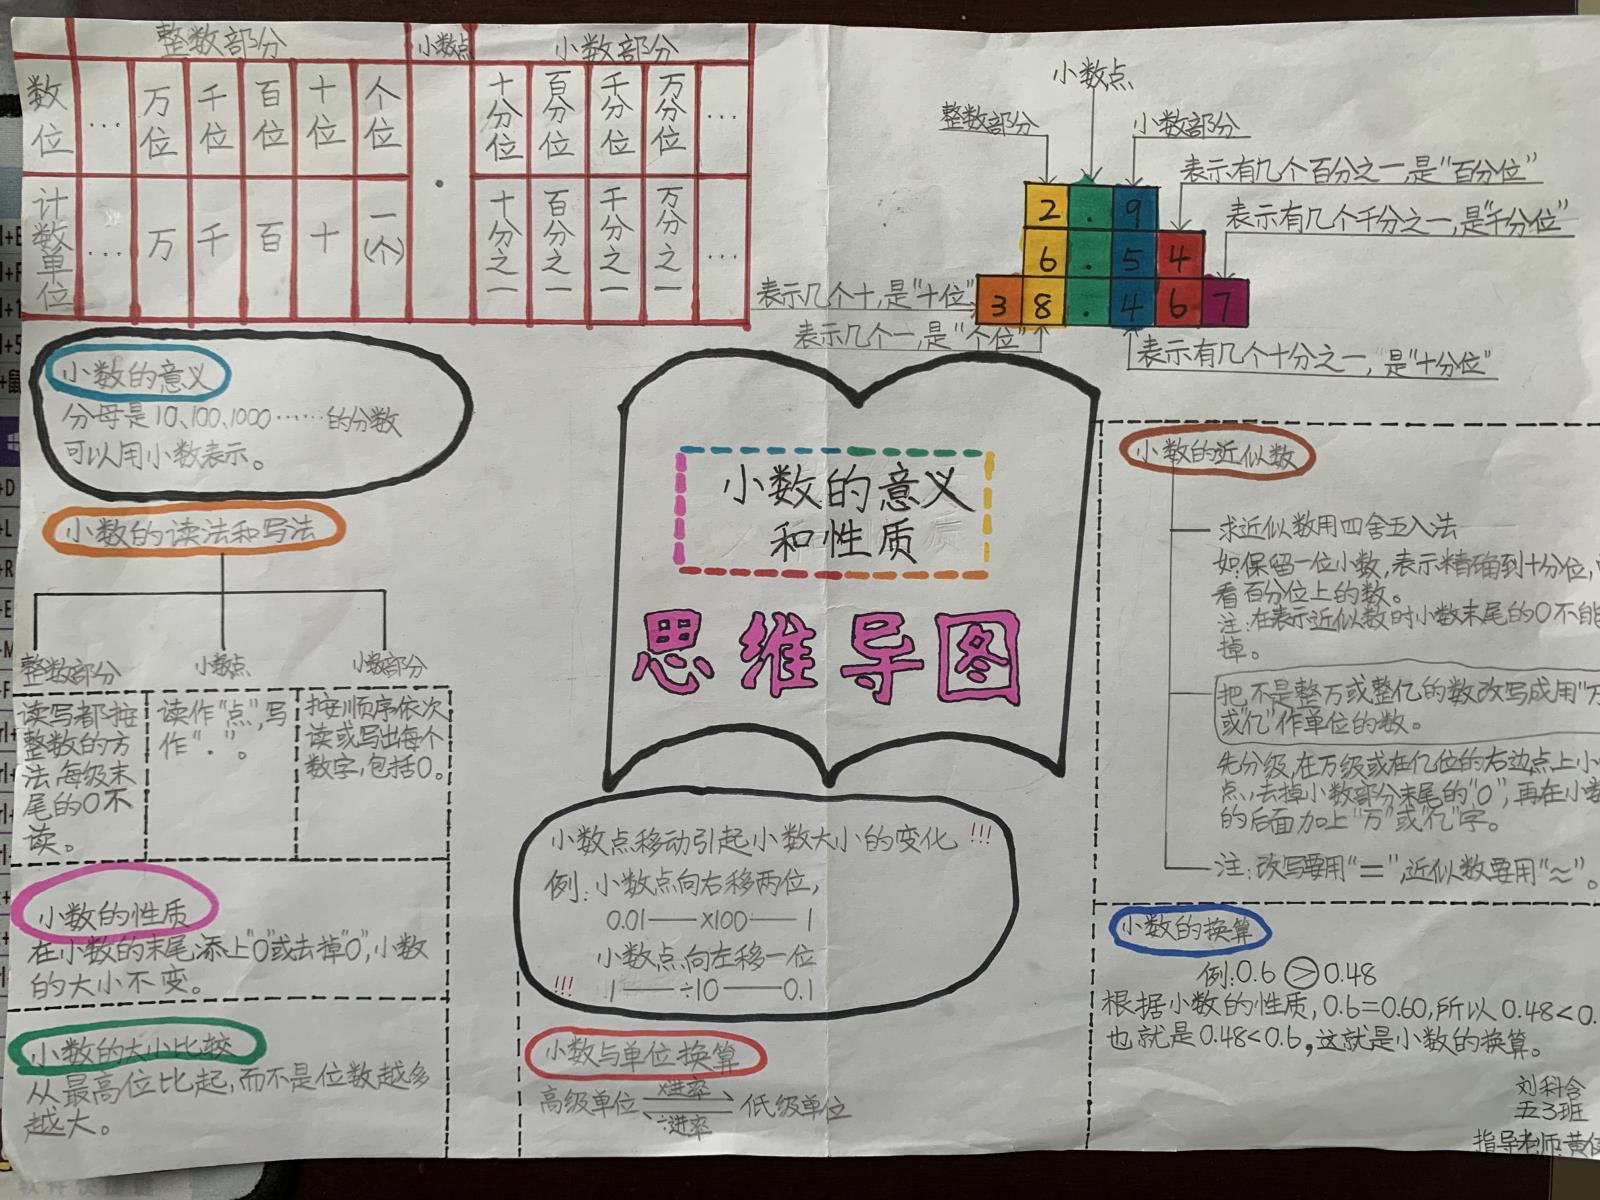 整数部分 小数点 小数部分
数位 … 万位 千位 百位 十位 个位 · 十分位 百分位 千分位 万分位 …
计数单位 … 万 千 百 十 一(个) 十分之一 百分之一 千分之一 万分之一 …
小数点
整数部分 小数部分
表示有几个百分之一,是"百分位"
2.9
表示有几个千分之一,是"千分位"
6.54
表示几个十,是"十位"
38.467
表示几个一,是"个位"
表示有几个十分之一,是"十分位"
小数的意义
分母是10、100、1000……的分数
可以用小数表示。
小数的读法和写法
整数部分
读写都按
整数的方
法,每级末
尾的0不
读。
小数点
读作"点",写
作"."。
小数部分
按顺序依次
读或写出每个
数字,包括0。
小数的性质
在小数的末尾添上"0"或去掉"0",小数
的大小不变。
小数的大小比较
从最高位比起,而不是位数越多
越大。
小数的意义
和性质
思维导图
小数点移动引起小数大小的变化 !!!
例:小数点向右移两位,
0.01——×100——1
小数点向左移一位
!!! 1——÷10——0.1
小数与单位换算
×进率
高级单位 低级单位
÷进率
小数的近似数
求近似数用四舍五入法
如:保留一位小数,表示精确到十分位,
看百分位上的数。
注:在表示近似数时小数末尾的0不能
掉。
把不是整万或整亿的数改写成用"万
或"亿"作单位的数。
先分级,在万级或在亿位的右边点上小
点,去掉小数部分末尾的"0",再在小数
的后面加上"万"或"亿"字。
注:改写要用"=",近似数要用"≈"。
小数的换算
例:0.6 > 0.48
根据小数的性质,0.6=0.60,所以0.48<0.
也就是0.48<0.6,这就是小数的换算。
刘科含
五3班
指导老师:黄